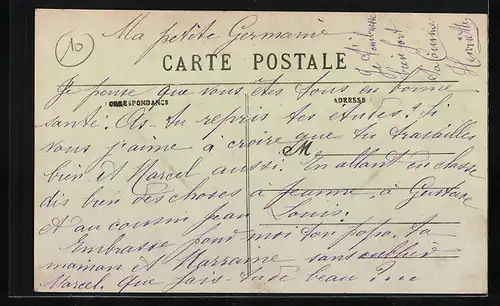 10
Ma petite Germaine
CARTE POSTALE
Je pense que vous êtes tous en bonne
CORRESPONDANCE
ADRESSE
santé. As-tu repris tes études? Si
vous j'aime à croire que tu travailles
M
bien et Marcel aussi. En allant en classe
dis bien des choses à Jeanne, à Gustave
et au cousin Jean Louis.
Embrasse pour moi ton papa, ta
maman et Marraine sans oublier
Marcel. Que fais-tu de beau
Je t'embrasse
bien fort
Ta cousine
Henriette